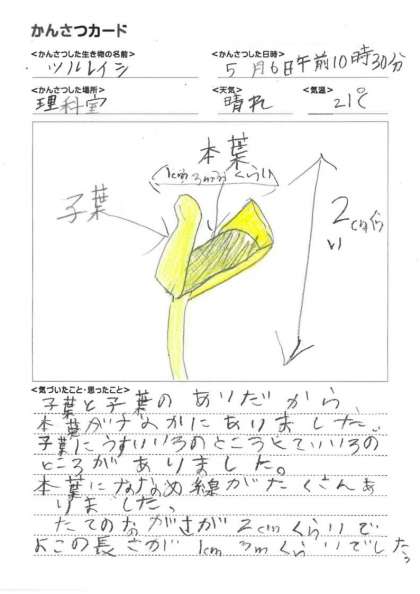 かんさつカード
<かんさつした生き物の名前>
ツルレイシ
<かんさつした日時>
5月6日午前10時30分
<かんさつした場所>
理科室
<天気>
晴れ
<気温>
21℃
本葉
1cm 3mmくらい
子葉
2cmくらい
<気づいたこと・思ったこと>
子葉と子葉のあいだから、
本葉がなかにありました、
子葉にうすいいろのところとこいいろの
ところがありました。
本葉にななめ線がたくさんあ
りました、
たてのながさが2cmくらいで
よこの長さが1cm 3mくらいでした。